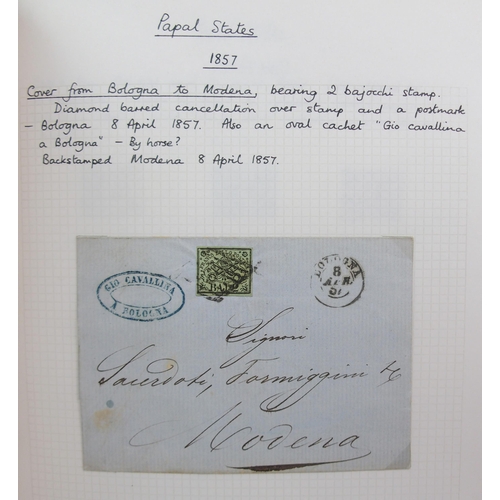 Papal States
1857
Cover from Bologna to Modena, bearing 2 bajocchi stamp.
Diamond barred cancellation over stamp and a postmark
- Bologna 8 April 1857. Also an oval cachet "Gio cavallina
a Bologna" - By horse?
Backstamped Modena 8 April 1857.
GIO CAVALLINA
A BOLOGNA
BAJ
BOLOGNA
8
APR.
57
Signori
Sacerdoti, Formiggini &
Modena